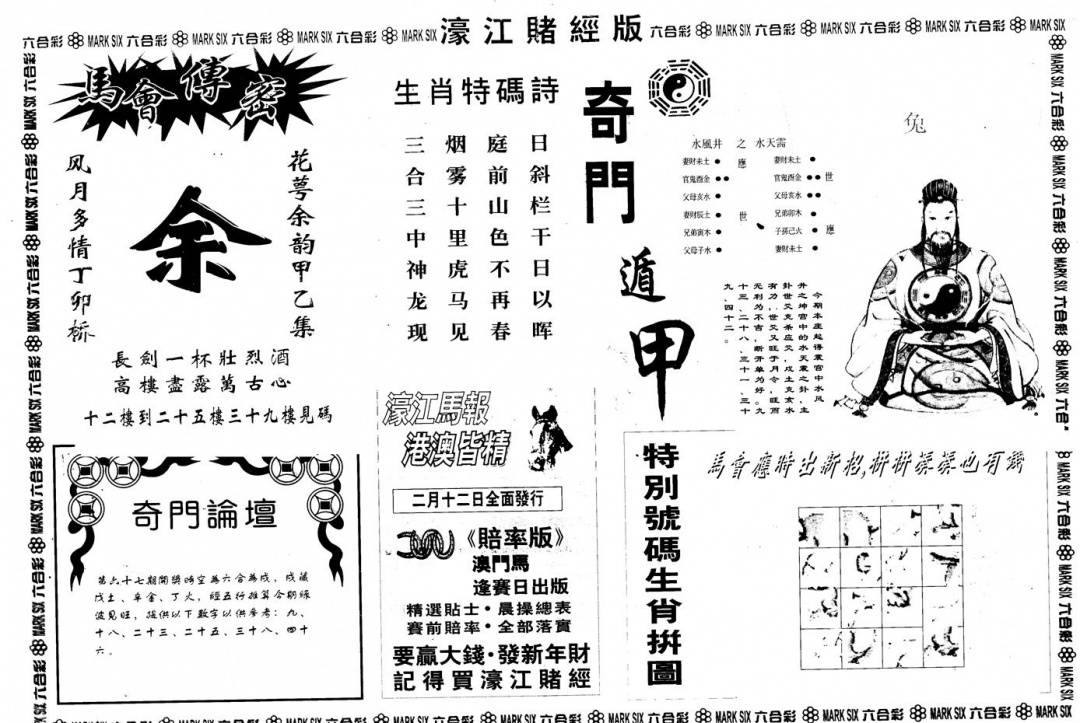 濠江賭經版
六合彩 MARK SIX 六合彩 MARK SIX 六合彩 MARK SIX 六合彩 MARK SIX
六合彩 MARK SIX 六合彩 MARK SIX 六合彩 MARK SIX 六合彩 MARK SIX
馬會傳密
花萼余韵甲乙集
余
风月多情丁卯桥
長劍一杯壯烈酒
高樓盡露萬古心
十二樓到二十五樓三十九樓見碼
生肖特碼詩
日斜栏干日以晖
庭前山色不再春
烟雾十里虎马见
三合三中神龙现
奇門遁甲
水風井 之 水天需
妻財未土 應
官鬼酉金
父母亥水
妻財辰土 世
兄弟寅木
父母子水
妻財未土
官鬼酉金 世
父母亥水
兄弟卯木
子孫己火 應
妻財未土
兔
九、四十二。
奇門論壇
第六十七期開獎時空為六合為戌，戌藏
戊土、辛金、丁火，經五行推算今期綠
波見旺，提供以下數字以供參考：九、
十八、二十三、二十五、三十八、四十
六。
濠江馬報
港澳皆精
二月十二日全面發行
《賠率版》
澳門馬
逢賽日出版
精選貼士·晨操總表
賽前賠率·全部落實
要贏大錢·發新年財
記得買濠江賭經
特別號碼生肖拚圖
馬會應時出新招,拼拼湊湊也有識